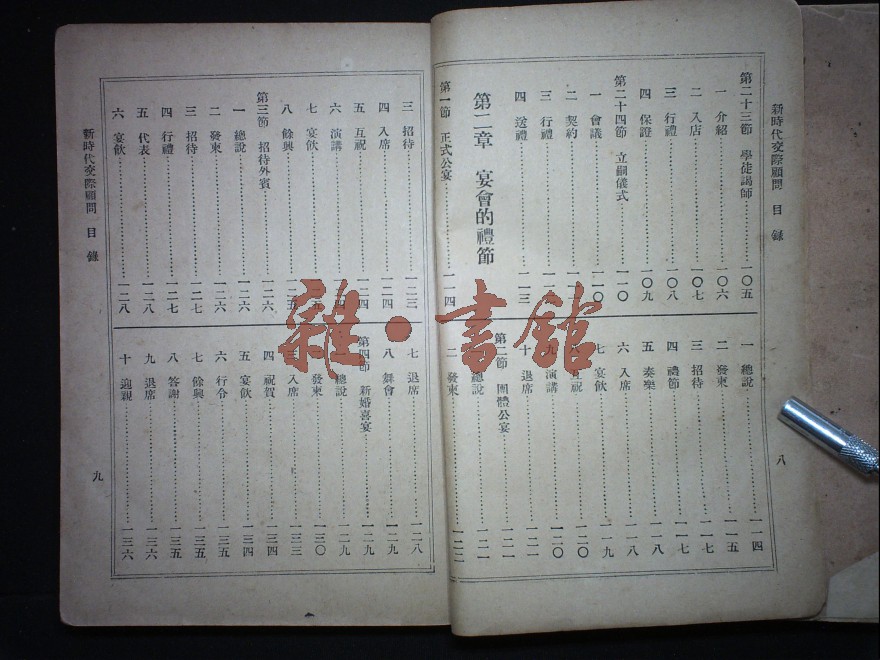 新時代交際顧問 目錄
第二十三節 學徒謁師 一〇五
一 介紹 一〇六
二 入店 一〇七
三 行禮 一〇八
四 保證 一〇九
第二十四節 立嗣儀式 一一〇
一 會議 一一〇
二 契約
三 行禮
四 送禮 一一三
第二章 宴會的禮節
第一節 正式公宴 一一四
一 總說 一一四
二 發柬 一一五
三 招待 一一七
四 禮節 一一七
五 奏樂 一一八
六 入席 一一八
七 宴飲 一一九
祝 一二〇
九 演講 一二〇
十 退席 一二一
第二節 團體公宴 一二一
總說 一二一
二 發柬 一二二
八
三 招待 一二三
四 入席 一二四
五 互祝 一二四
六 演講
七 宴飲
八 餘興
第三節 招待外賓 一二六
一 總說 一二六
二 發柬 一二六
三 招待 一二七
四 行禮 一二七
五 代表 一二八
六 宴飲 一二八
七 退席 一二八
八 舞會 一二九
第四節 新婚喜宴 一二九
總說 一二九
發柬 一三〇
三 入席 一三三
四 祝賀 一三四
五 宴飲 一三四
六 行令 一三五
七 餘興 一三五
八 答謝 一三五
九 退席 一三六
十 迎親 一三六
新時代交際顧問 目錄
九
雜·書館